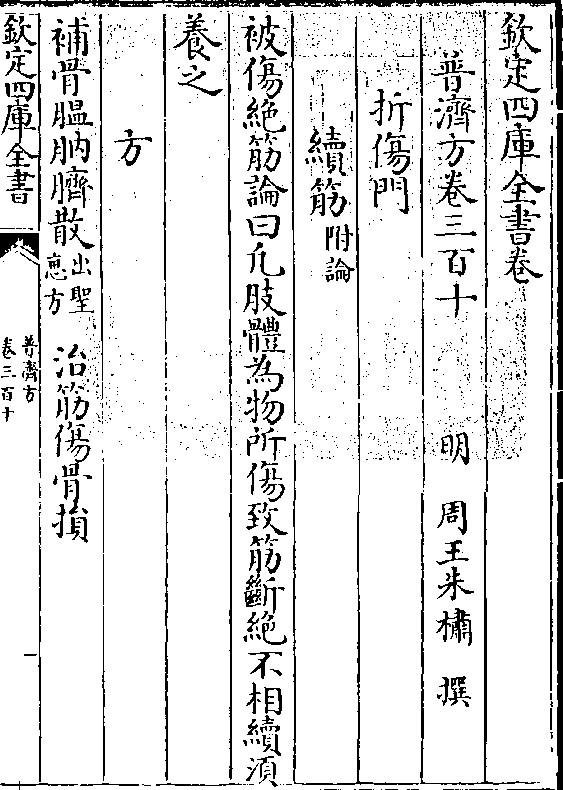 欽定四庫全書卷
普濟方卷三百十 明 周王朱橚 撰
折傷門
續筋 附論
被傷絶筋論曰凡肢體為物所傷致筋斷絶不相續須
養之
方
補骨膃肭臍散 出聖惠方 治筋傷骨損
欽定四庫全書
普濟方
卷三百十